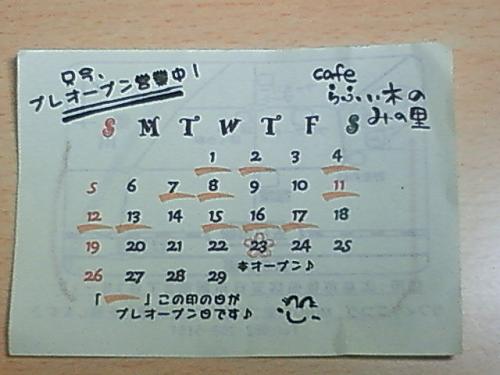 只今、
プレオープン営業中!
cafe
らふぃ木の
みの里
S M T W T F S
1 2 3 4
5 6 7 8 9 10 11
12 13 14 15 16 17 18
19 20 21 22 23 24 25
本オープン♪
26 27 28 29
「 」この印の日が
プレオープン日です♪